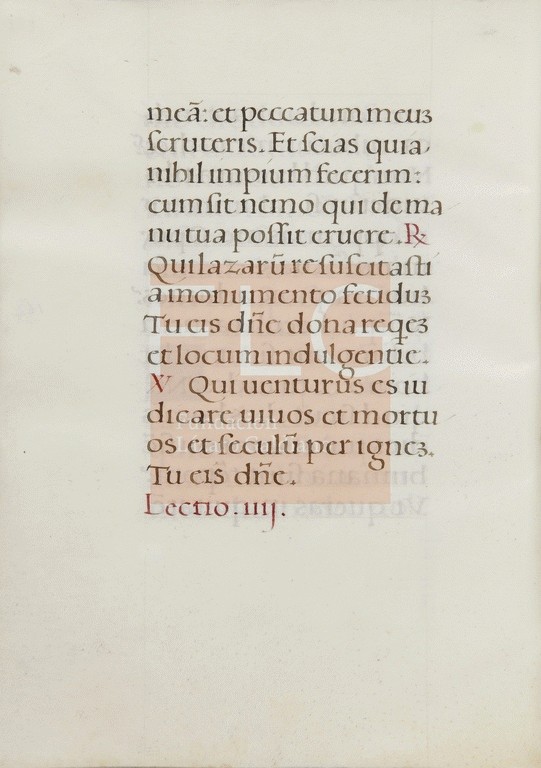 meā: et peccatum meuꝫ
ſcruteris. Et ſcias quia
nihil impium fecerim:
cum ſit nemo qui de ma
nu tua poſſit eruere. ℟
Qui lazarū reſuſcitaſti
a monumento fetiduꝫ
Tu eis dñe dona reqeꝫ
et locum indulgentie.
V Qui uenturus es iu
dicare uiuos et mortu
os et ſeculū per igneꝫ.
Tu eis dñe.
Lectio. iiij.
FLG
Fundación